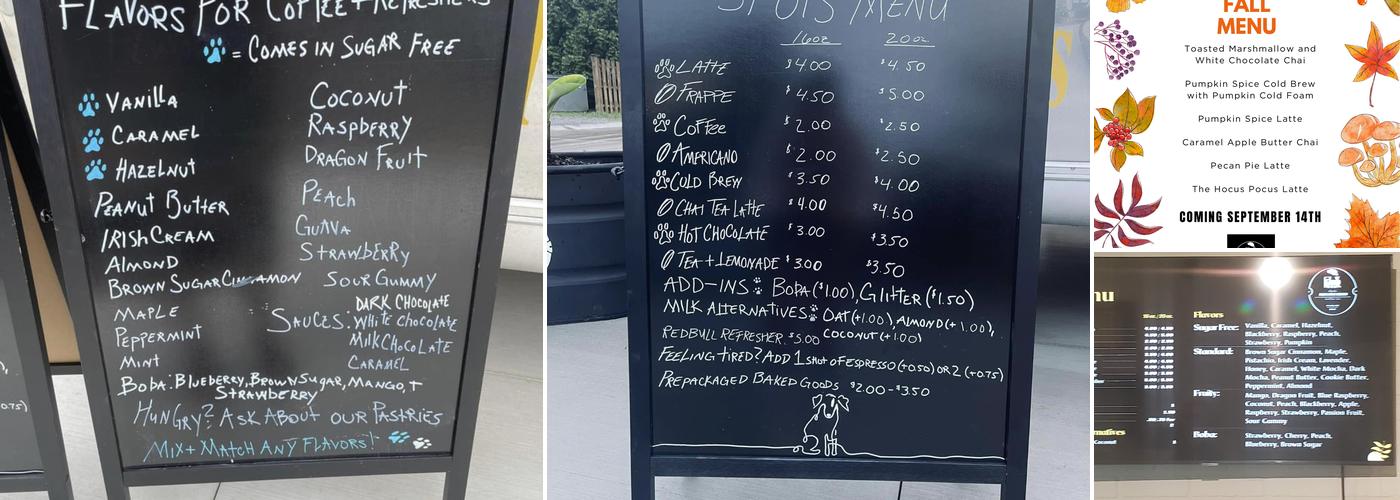 FLAVORS FOR COFFEE + REFRESHERS
= COMES IN SUGAR FREE
VANILLA
CARAMEL
HAZELNUT
PEANUT BUTTER
IRISH CREAM
ALMOND
BROWN SUGAR CINNAMON
MAPLE
PEPPERMINT
MINT
COCONUT
RASPBERRY
DRAGON FRUIT
PEACH
GUAVA
STRAWBERRY
SOUR GUMMY
SAUCES: DARK CHOCOLATE
WHITE CHOCOLATE
MILK CHOCOLATE
CARAMEL
BOBA: BLUEBERRY, BROWN SUGAR, MANGO, +
STRAWBERRY
HUNGRY? ASK ABOUT OUR PASTRIES
MIX + MATCH ANY FLAVORS!
+0.75)
SPOTS MENU
16oz 20oz
LATTE $4.00 $4.50
FRAPPE $4.50 $5.00
COFFEE $2.00 $2.50
AMERICANO $2.00 $2.50
COLD BREW $3.50 $4.00
CHAI TEA LATTE $4.00 $4.50
HOT CHOCOLATE $3.00 $3.50
TEA + LEMONADE $3.00 $3.50
ADD-INS: BOBA ($1.00), GLITTER ($1.50)
MILK ALTERNATIVES: OAT (+1.00), ALMOND (+1.00),
COCONUT (+1.00)
REDBULL REFRESHER $5.00
FEELING TIRED? ADD 1 SHOT OF ESPRESSO (+0.50) OR 2 (+0.75)
PREPACKAGED BAKED GOODS $2.00-$3.50
FALL
MENU
Toasted Marshmallow and
White Chocolate Chai
Pumpkin Spice Cold Brew
with Pumpkin Cold Foam
Pumpkin Spice Latte
Caramel Apple Butter Chai
Pecan Pie Latte
The Hocus Pocus Latte
COMING SEPTEMBER 14TH
nu
Flavors
Sugar Free: Vanilla, Caramel, Hazelnut,
Blackberry, Raspberry, Peach,
Strawberry, Pumpkin
Standard: Brown Sugar Cinnamon, Maple,
Pistachio, Irish Cream, Lavender,
Honey, Caramel, White Mocha, Dark
Mocha, Peanut Butter, Cookie Butter,
Peppermint, Almond
Fruity: Mango, Dragon Fruit, Blue Raspberry,
Coconut, Peach, Blackberry, Apple,
Raspberry, Strawberry, Passion Fruit,
Sour Gummy
Boba: Strawberry, Cherry, Peach,
Blueberry, Brown Sugar